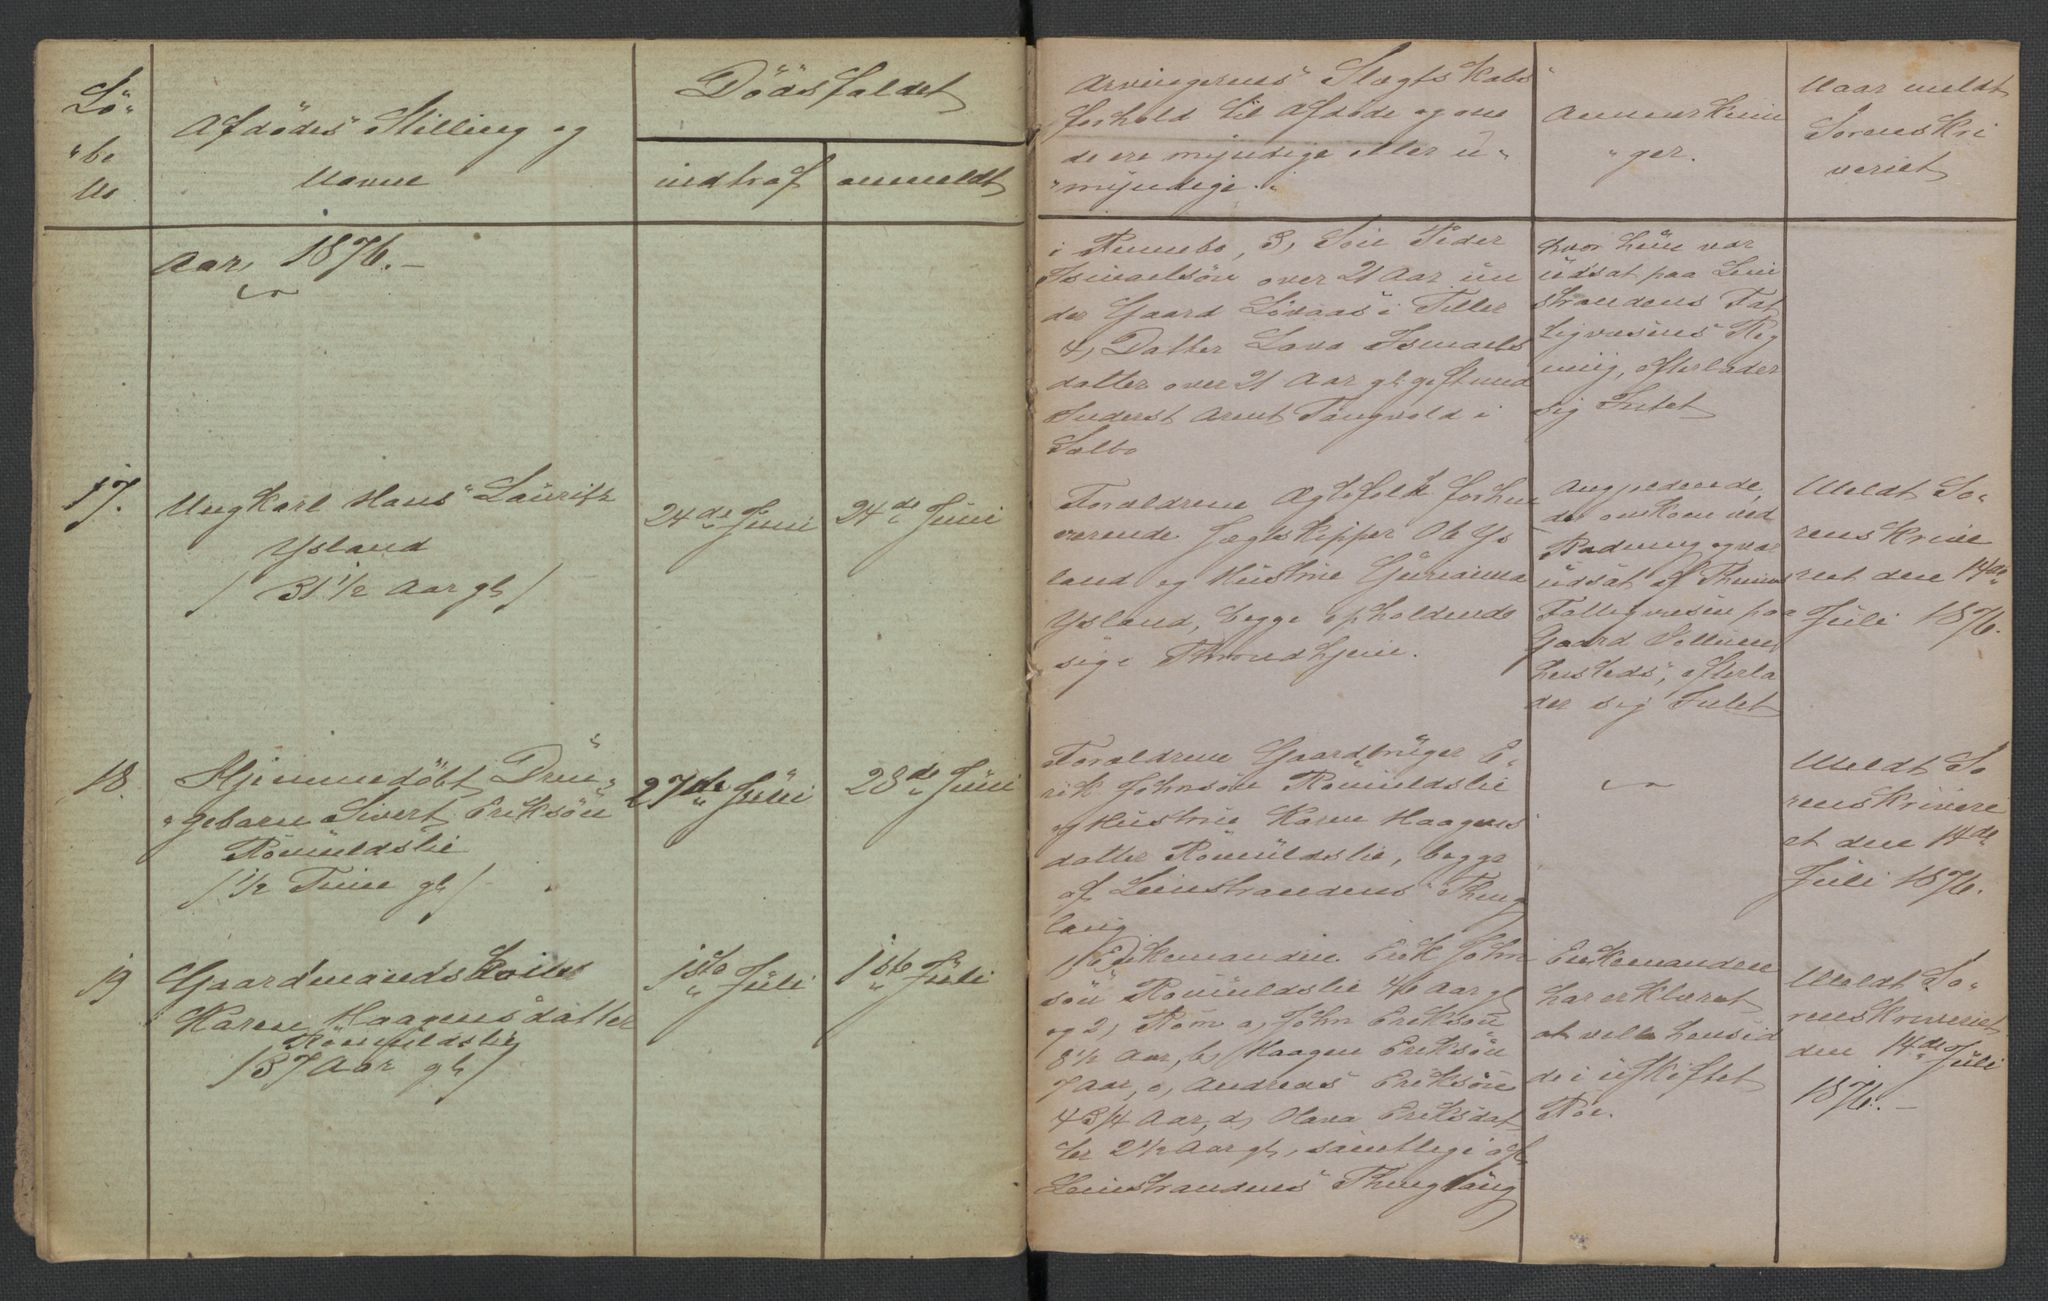 Lö-
"be
No
Afdödes Stilling og
Navne
Dödsfaldet
indtraf
anmeldt
Arvingernes Slægtskabs
forhold til Afdöde og om
de ere myndige eller u-
"myndige.
Anmerknin
"ger.
Naar meldt
Sorenskri
veriet
Aar 1876.-
i Rennebo, 3, Sön Peder
Ismaelsön over 21 Aar un
der Gaard Lövaas i Tiller
4, Datter Lava Ismaels
datter over 21 Aar gl. gift med
Inderst Arnt Tangvold i
Sælbo
hvor hun var
udsat paa Lein
strandens Fat
tigvæsens Reg
ning, efterlader
sig Intet
17.
Ungkarl Hans Lauritz
Ysland
/ 31 1/2 Aar gl /
24de Juni
24de Juni
Forældrene Ægtefolk forhen
værende Jægtskipper Ole Ys
land og Hustrue Gurianna
Ysland, begge opholdende
sig i Throndhjem.
Angjældende,
der omkom ved
Badning og var
udsat af Thrums
Fattigvæsen paa
Gaard
efterla
der sig Intet
Meldt So-
renskrive
riet den 14de
Juli 1876.
18.
Hjemmedöbt Dren-
"gebarn Sivert Eriksön
Römuldslie
/ 1/2 Time gl /
27de Juni
28de Juni
Forældrene Gaardbruger E-
rik Johnsön Römuldslie
og Hustrue Karen Haagens
datter Römuldslie, begge
af Leinstrandens Thing
laug
Meldt So
renskrivere
et den 14de
Juli 1876.
19
Gaardmandskone
Karen Haagensdatter
Römuldslie
/ 37 Aar gl /
1ste Juli
1ste Juli
1, Enkemanden Erik John
sön Römuldslie 46 Aar gl
og 2, Börn a, John Eriksön
8 1/2 Aar, b, Haagen Eriksön
7 Aar, c, Andreas Eriksön
4 3/4 Aar, d, Hana Eriksdat
ter 2 1/2 Aar gl, samtlige af
Leinstrandens Thinglaug
Enkemanden
har erklæret
at ville hensid
de i uskiftet
Boe.
Meldt So-
renskriveriet
den 14de Juli
1876.-